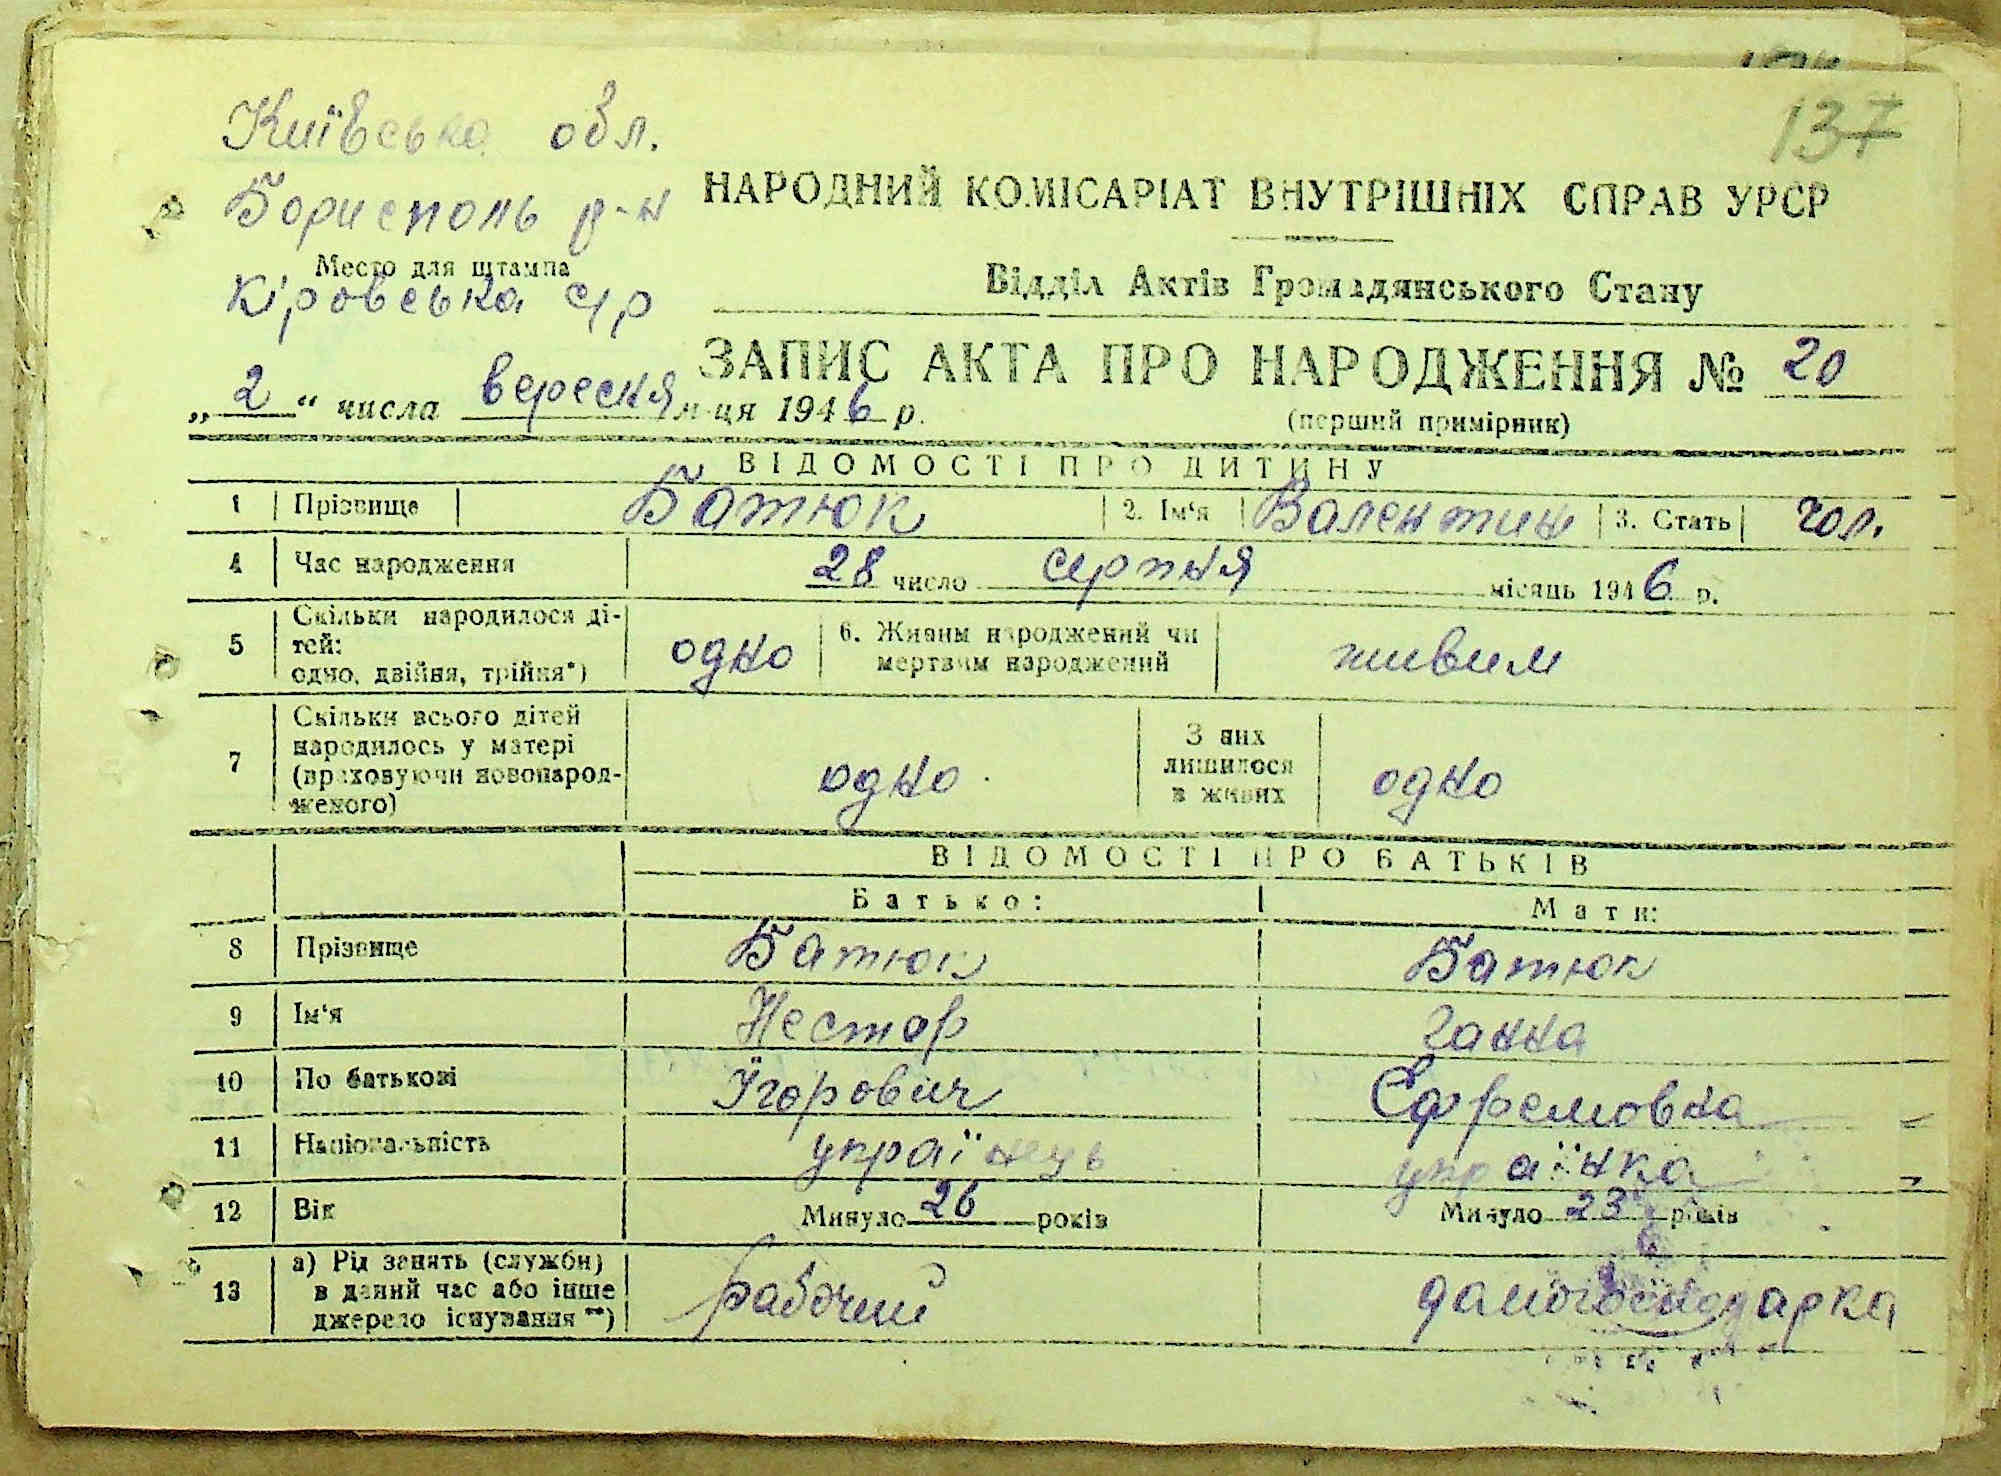 137
Київська обл.
Борисполь р-н
Место для штампа
Кіровська с/р
НАРОДНИЙ КОМІСАРІАТ ВНУТРІШНІХ СПРАВ УРСР
Відділ Актів Громадянського Стану
ЗАПИС АКТА ПРО НАРОДЖЕННЯ № 20
(перший примірник)
„2“ числа вересня м-ця 1946 р.
ВІДОМОСТІ ПРО ДИТИНУ
1 Прізвище Батюк 2. Ім'я Валентин 3. Стать чол.
4 Час народження 28 число серпня місяць 1946 р.
5 Скільки народилося ді-
тей:
одно, двійня, трійня*) одно 6. Живим народжений чи
мертвим народжений живим
7 Скільки всього дітей
народилось у матері
(враховуючи новонарод-
женого) одно З них
лишилося
в живих одно
ВІДОМОСТІ ПРО БАТЬКІВ
Батько: Мати:
8 Прізвище Батюк Батюк
9 Ім'я Нестор Ганна
10 По батькові Їгорович Єфремовна
11 Національність україн­ець українка
12 Вік Минуло 26 років Минуло 23 років
13 а) Рід занять (служби)
в даний час або інше
джерело існування **) рабочий домогосподарка